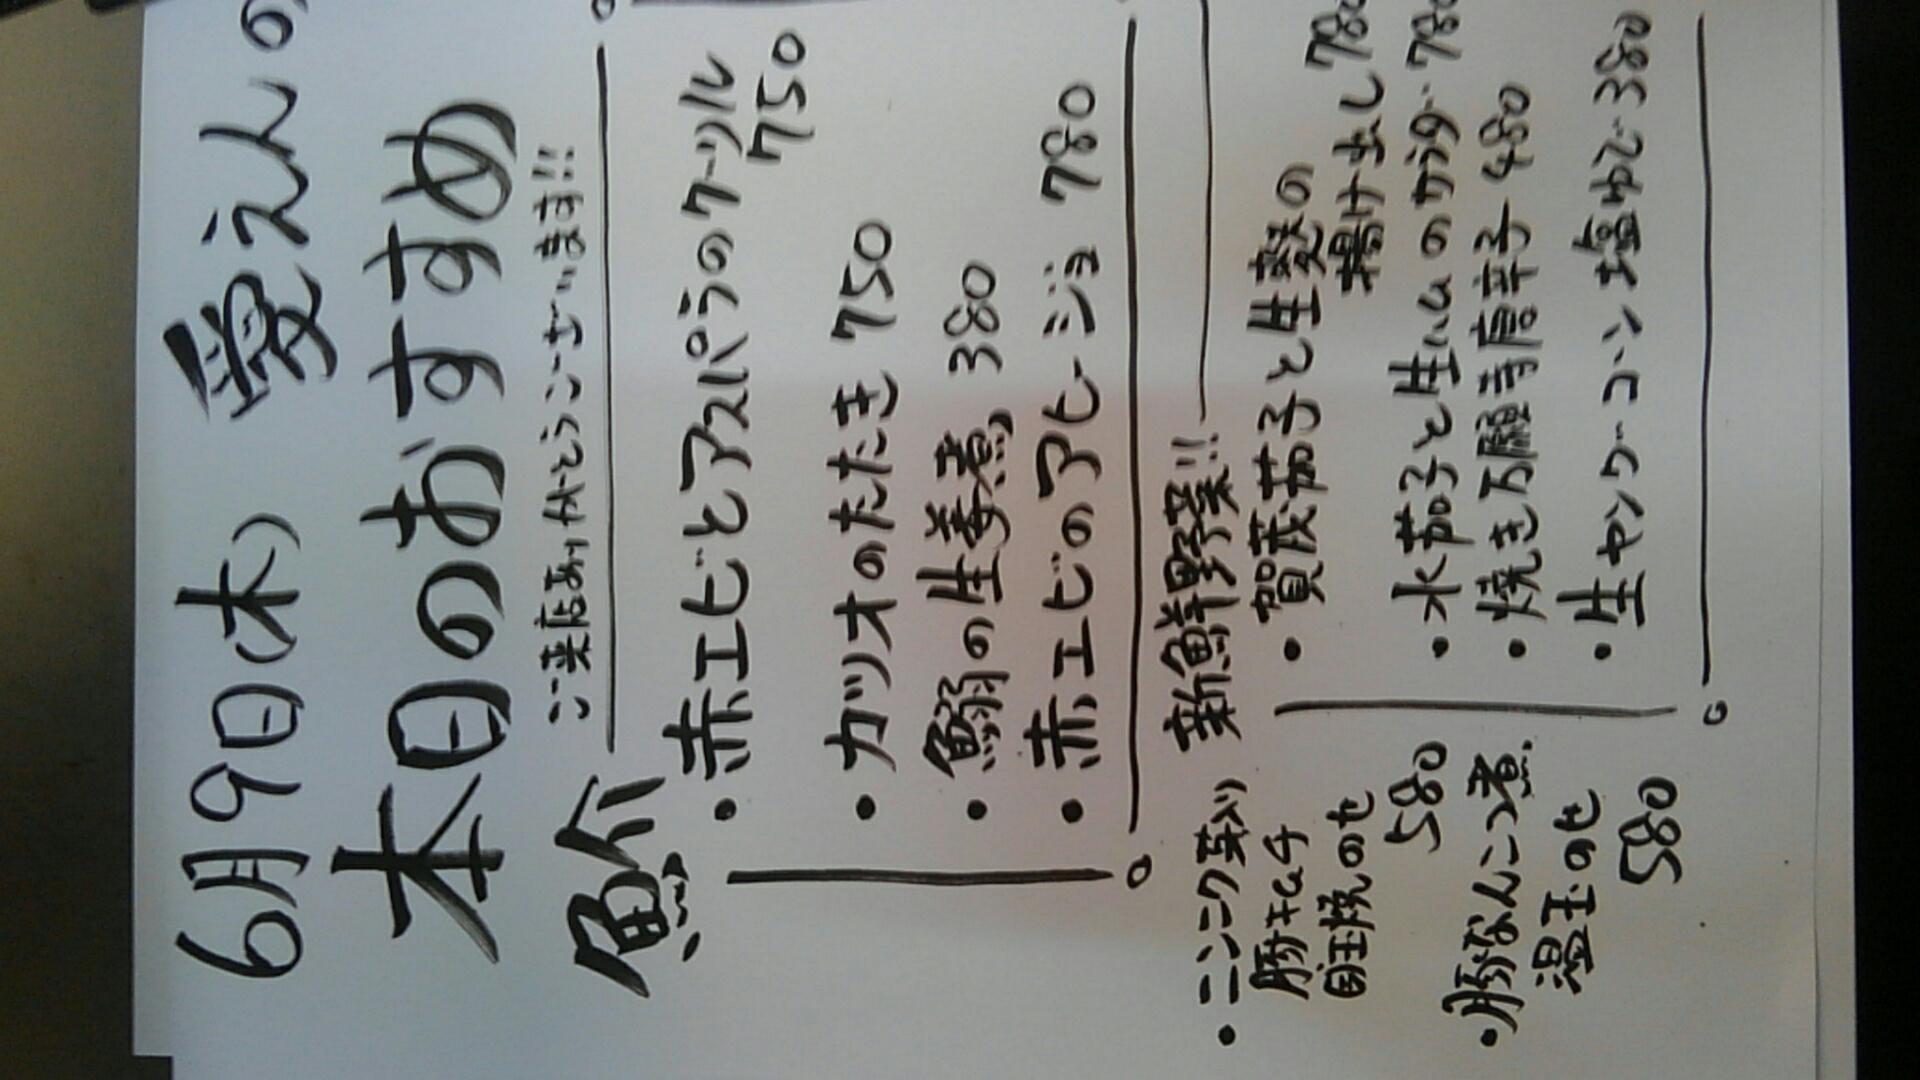 6月9日(木) 愛えんの
本日のおすすめ
ご来店ありがとうございます!!
魚介
・赤エビとアスパラのクーリル
750
・カツオのたたき 750
・鰯の生姜煮 380
・赤エビのアヒージョ 780
新鮮野菜!!
・賀茂茄子と生麩の
揚げ出し 780
・水茄子と生ハムのサラダ 780
・焼き万願寺唐辛子 480
・生ヤングコーン塩ゆで 380
・ニンニク葉入り
豚キムチ
目玉焼のせ
580
・豚なんこつ煮
温玉のせ
580